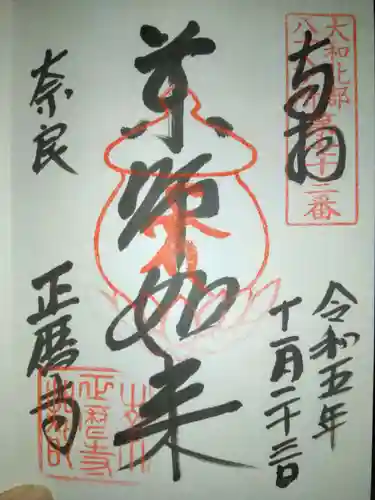 奉拝
大和北部
八十八ヶ所第十二番
令和五年
十一月二十三日
薬師如来
奈良
正暦寺
正暦寺